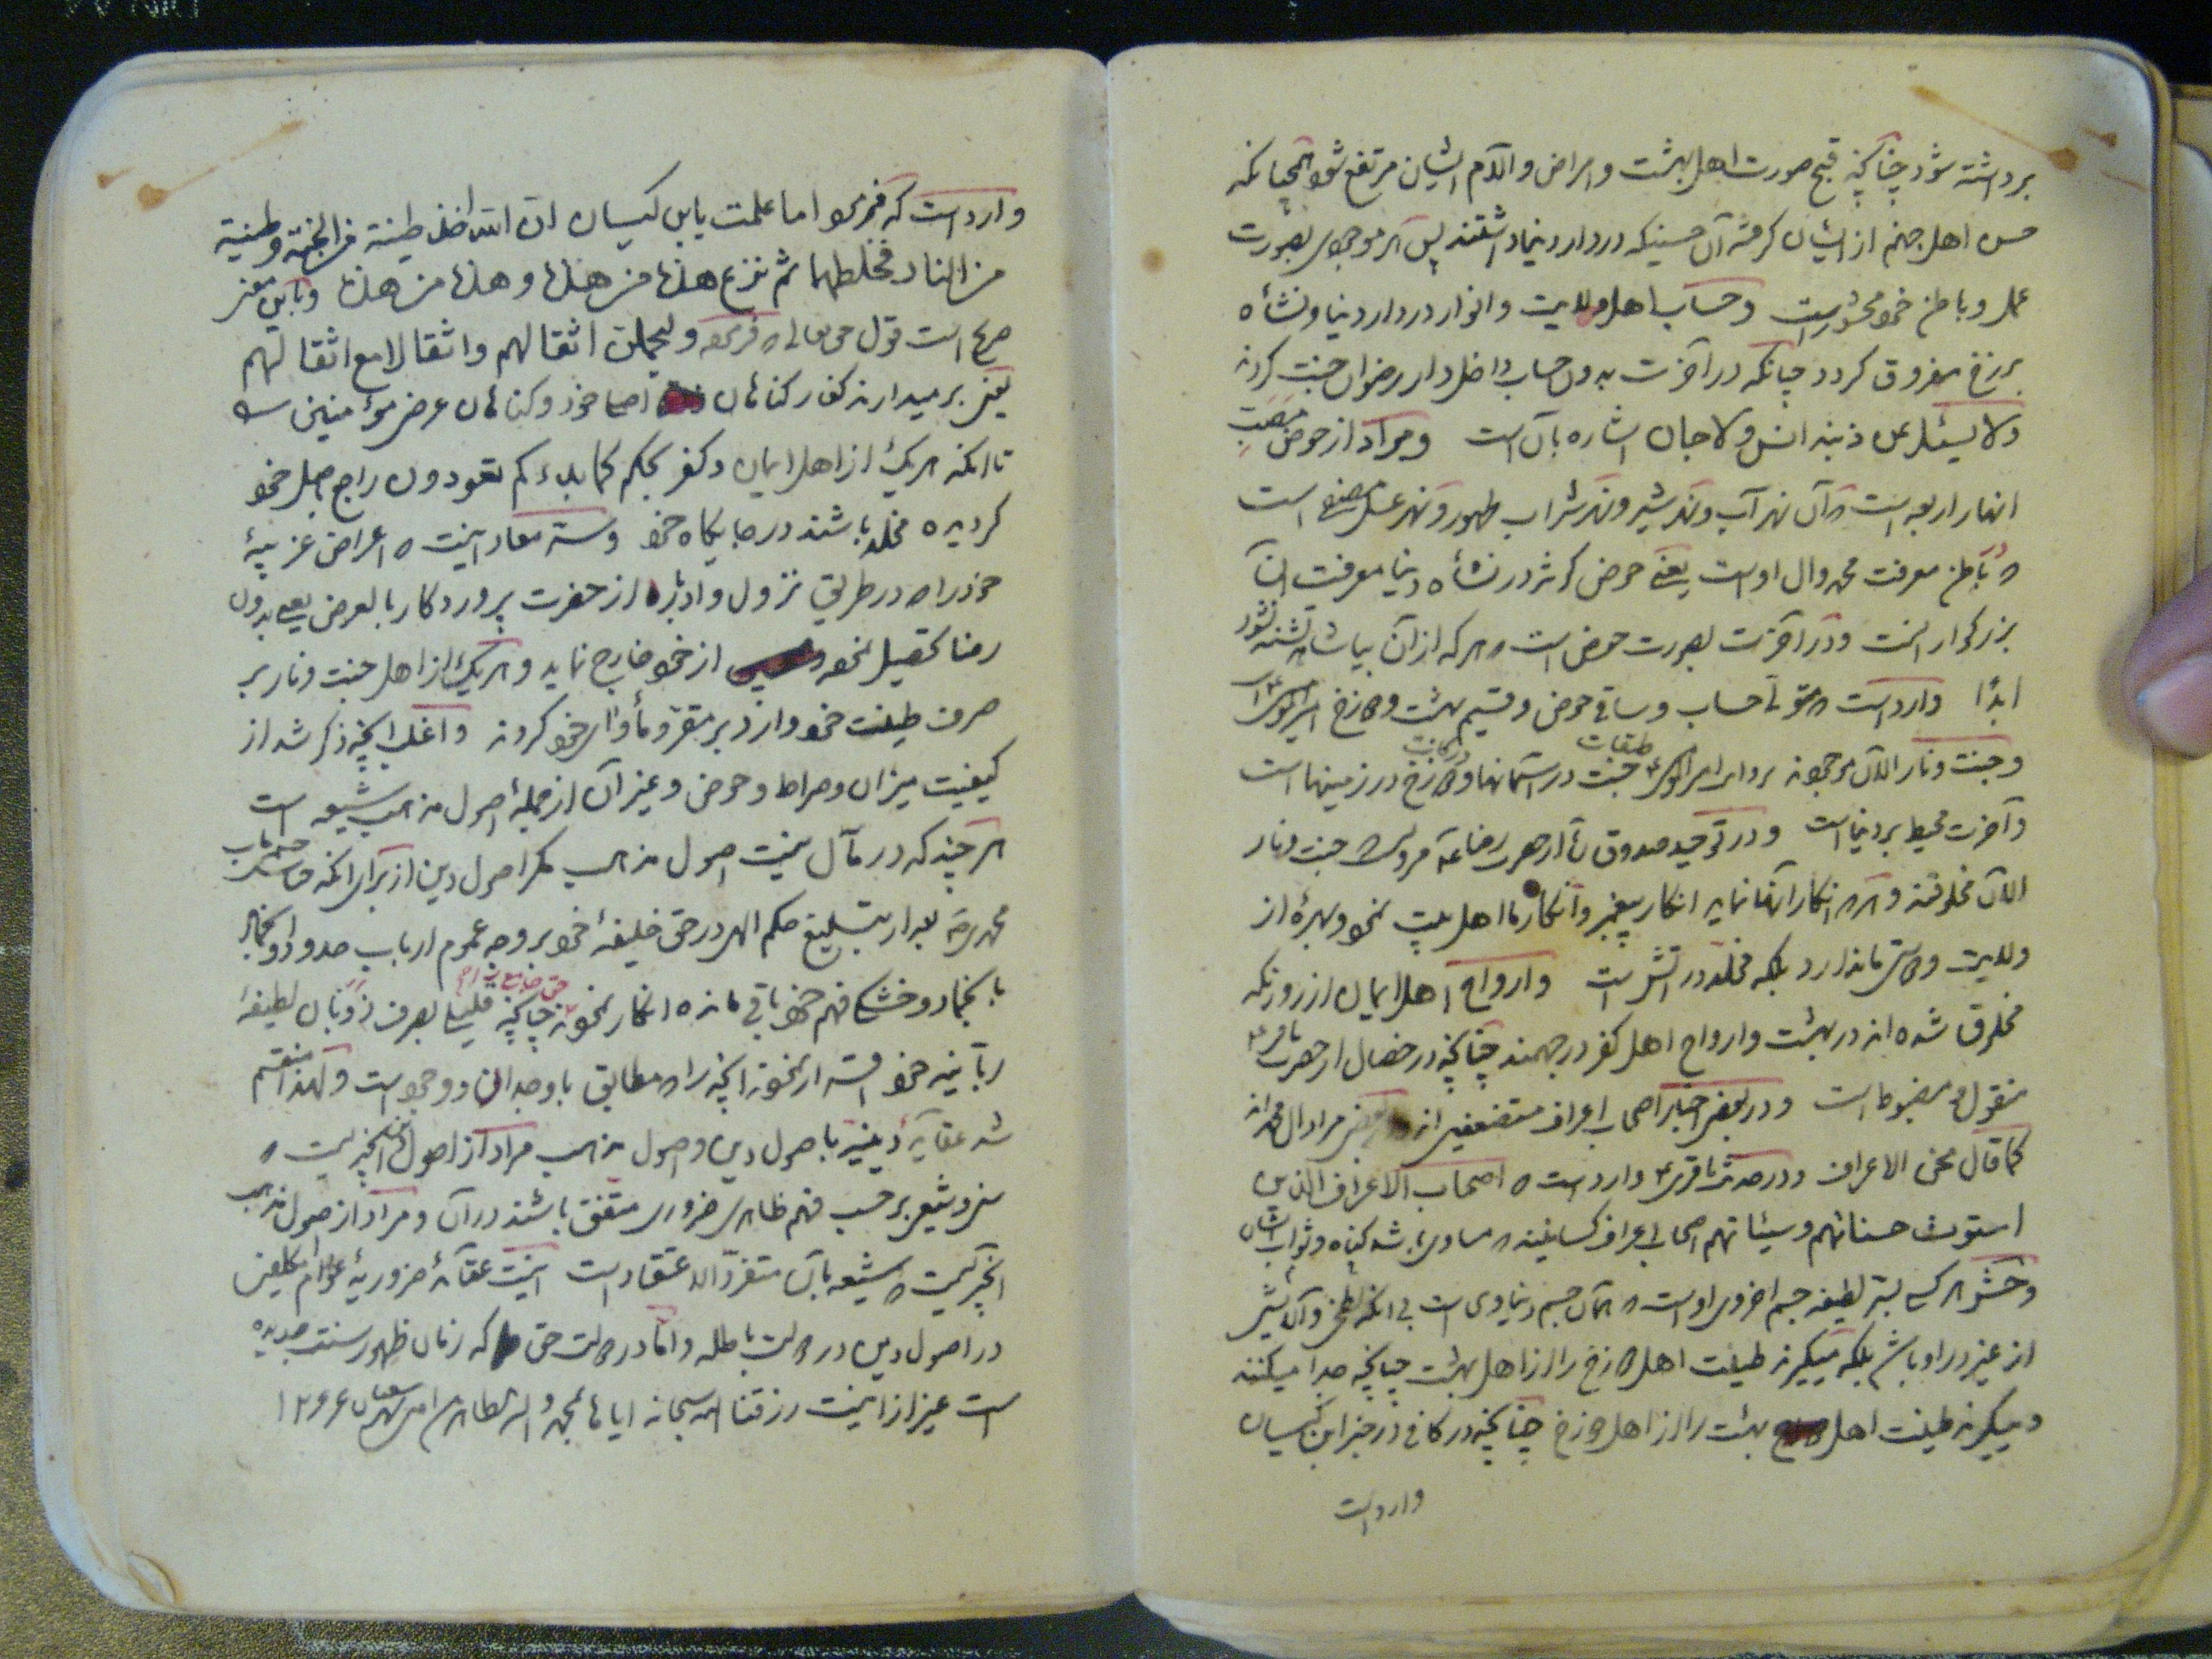 برداشته شود چنانچه قبح صورت اهل بهشت و امراض و آلام ایشان مرتفع شود همچنانکه
حسن اهل جهنم از ایشان گرفته آن حسنیکه در دار دنیا داشتند پس هر موجودی بصورت
عمل و باطن خود محشور است و حساب اهل ولایت و انوار در دار دنیا و نشأه
برزخ مفروق گردد چنانکه در آخرت بدون حساب داخل دار رضوان جنت گردند
ولا یسئل عن ذنبه انس ولا جان اشاره بآن است و مراد از حوض
انهار اربعه است که آن نهر آب و نهر شیر و نهر شراب طهور و نهر عسل مصفی است
که باطن معرفت محمد و آل اوست یعنی حوض کوثر در نشأه دنیا معرفت آن
بزرگوار است و در آخرت بصورت حوض است که هر که از آن بیاشامد تشنه نشود
ابدًا وارد است که متولی حساب و ساقی حوض و قسیم بهشت و دوزخ
و جنت و نار الآن موجودند طبقات جنت در آسمانها و درکات دوزخ در زمینها است
و آخرت محیط بر دنیا است و در توحید صدوق از حضرت رضا مرویست جنت و نار
الآن مخلوقند و هر که انکار آنها نماید انکار پیغمبر و انکار ما اهل بیت نموده و بهره از
ولایت و دوستی ما ندارد بلکه مخلد در آتش است و ارواح اهل ایمان از روزیکه
مخلوق شده اند در بهشت و ارواح اهل کفر در جهنمند چنانچه در خصال از حضرت باقر ع
منقول و مضبوط است و در بعض اخبار اصحاب اعراف مستضعفین اند مراد آل محمد اند
کما قال نحن الاعراف و در حدیث باقری ع وارد است که اصحاب الاعراف الذین
استوت حسناتهم وسیئاتهم اصحاب اعراف کسانینند که مساوی باشد گناه و ثواب ایشان
و حشر هر کسی بتن لطیفه جسم اخروی اوست که همان جسم دنیاوی است بی آنکه
از غیر در او باشد بلکه میگیرند طینت اهل دوزخ را از اهل بهشت چنانچه جدا میکنند
و میگیرند طینت اهل بهشت را از اهل دوزخ چنانچه در کافی در خبر ابن کیسان
وارد است
وارد است که فرمود اما علمت یابن کیسان ان الله اخذ طینة من الجنة وطینة
من النار فخلطهما ثم نزع هذه من هذه وهذه من هذه و باین معنی
صریح است قول حق تعالی که فرموده ولیحملن اثقالهم واثقالا مع اثقالهم
یعنی برمیدارند کفار گناهان خود و گناهان عرض مؤمنین
تا آنکه هر یک از اهل ایمان و کفر بحکم کما بدءکم تعودون راجع باصل خود
گردیده مخلد باشند در جایگاه خود و سنة معاد اینست که اعراض غریبهٔ
خود را که در طریق نزول و ادبار از حضرت پروردگار بالعرض یعنی بدون
رضا تحصیل نموده از خود خارج نماید و هر یک از اهل جنت و نار بر
صرف طینت خود وارد بر مقر و مأوای خود گردند و اغلب آنچه ذکر شد از
کیفیت میزان و صراط و حوض و غیر آن از جملهٔ اصول مذهب شیعه است
هر چند که در مآل نیست اصول مذهب مگر اصول دین از برای آنکه
محمد بعد از تبلیغ حکم الهی در حق خلیفهٔ خود بر وجه عموم ارباب
فهم خود باقی مانده انکار نمودند چنانچه لطیفهٔ
ربانیه خود انکار نمودند آنچه را که مطابق با وجدان و وجود است و لهذا منقسم
شد عقاید دینیه باصول دین و اصول مذهب مراد از اصول دین آنچیزیست که
سنی و شیعی بر حسب فهم ظاهری ضروری متفق باشند در آن و مراد از اصول مذهب
آنچیزیست که شیعه بآن متفرد الاعتقاد است اینست عقاید ضروریهٔ عوام مکلفین
در اصول دین در دولت باطله و اما در دولت حق که زمان ظهور سنت جدیده
است غیر از اینست رزقنا الله سبحانه ایاها بمحمد و آله الطاهرین